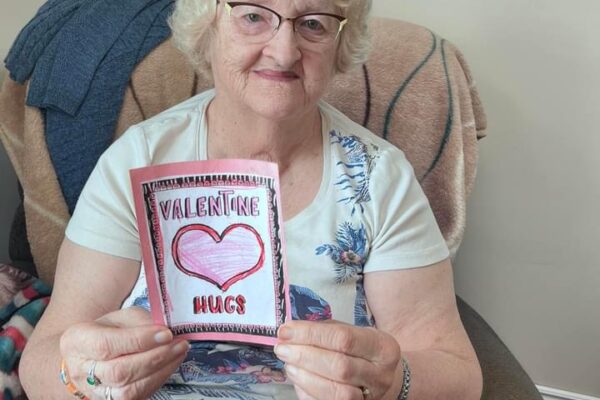 VALENTINE
HUGS